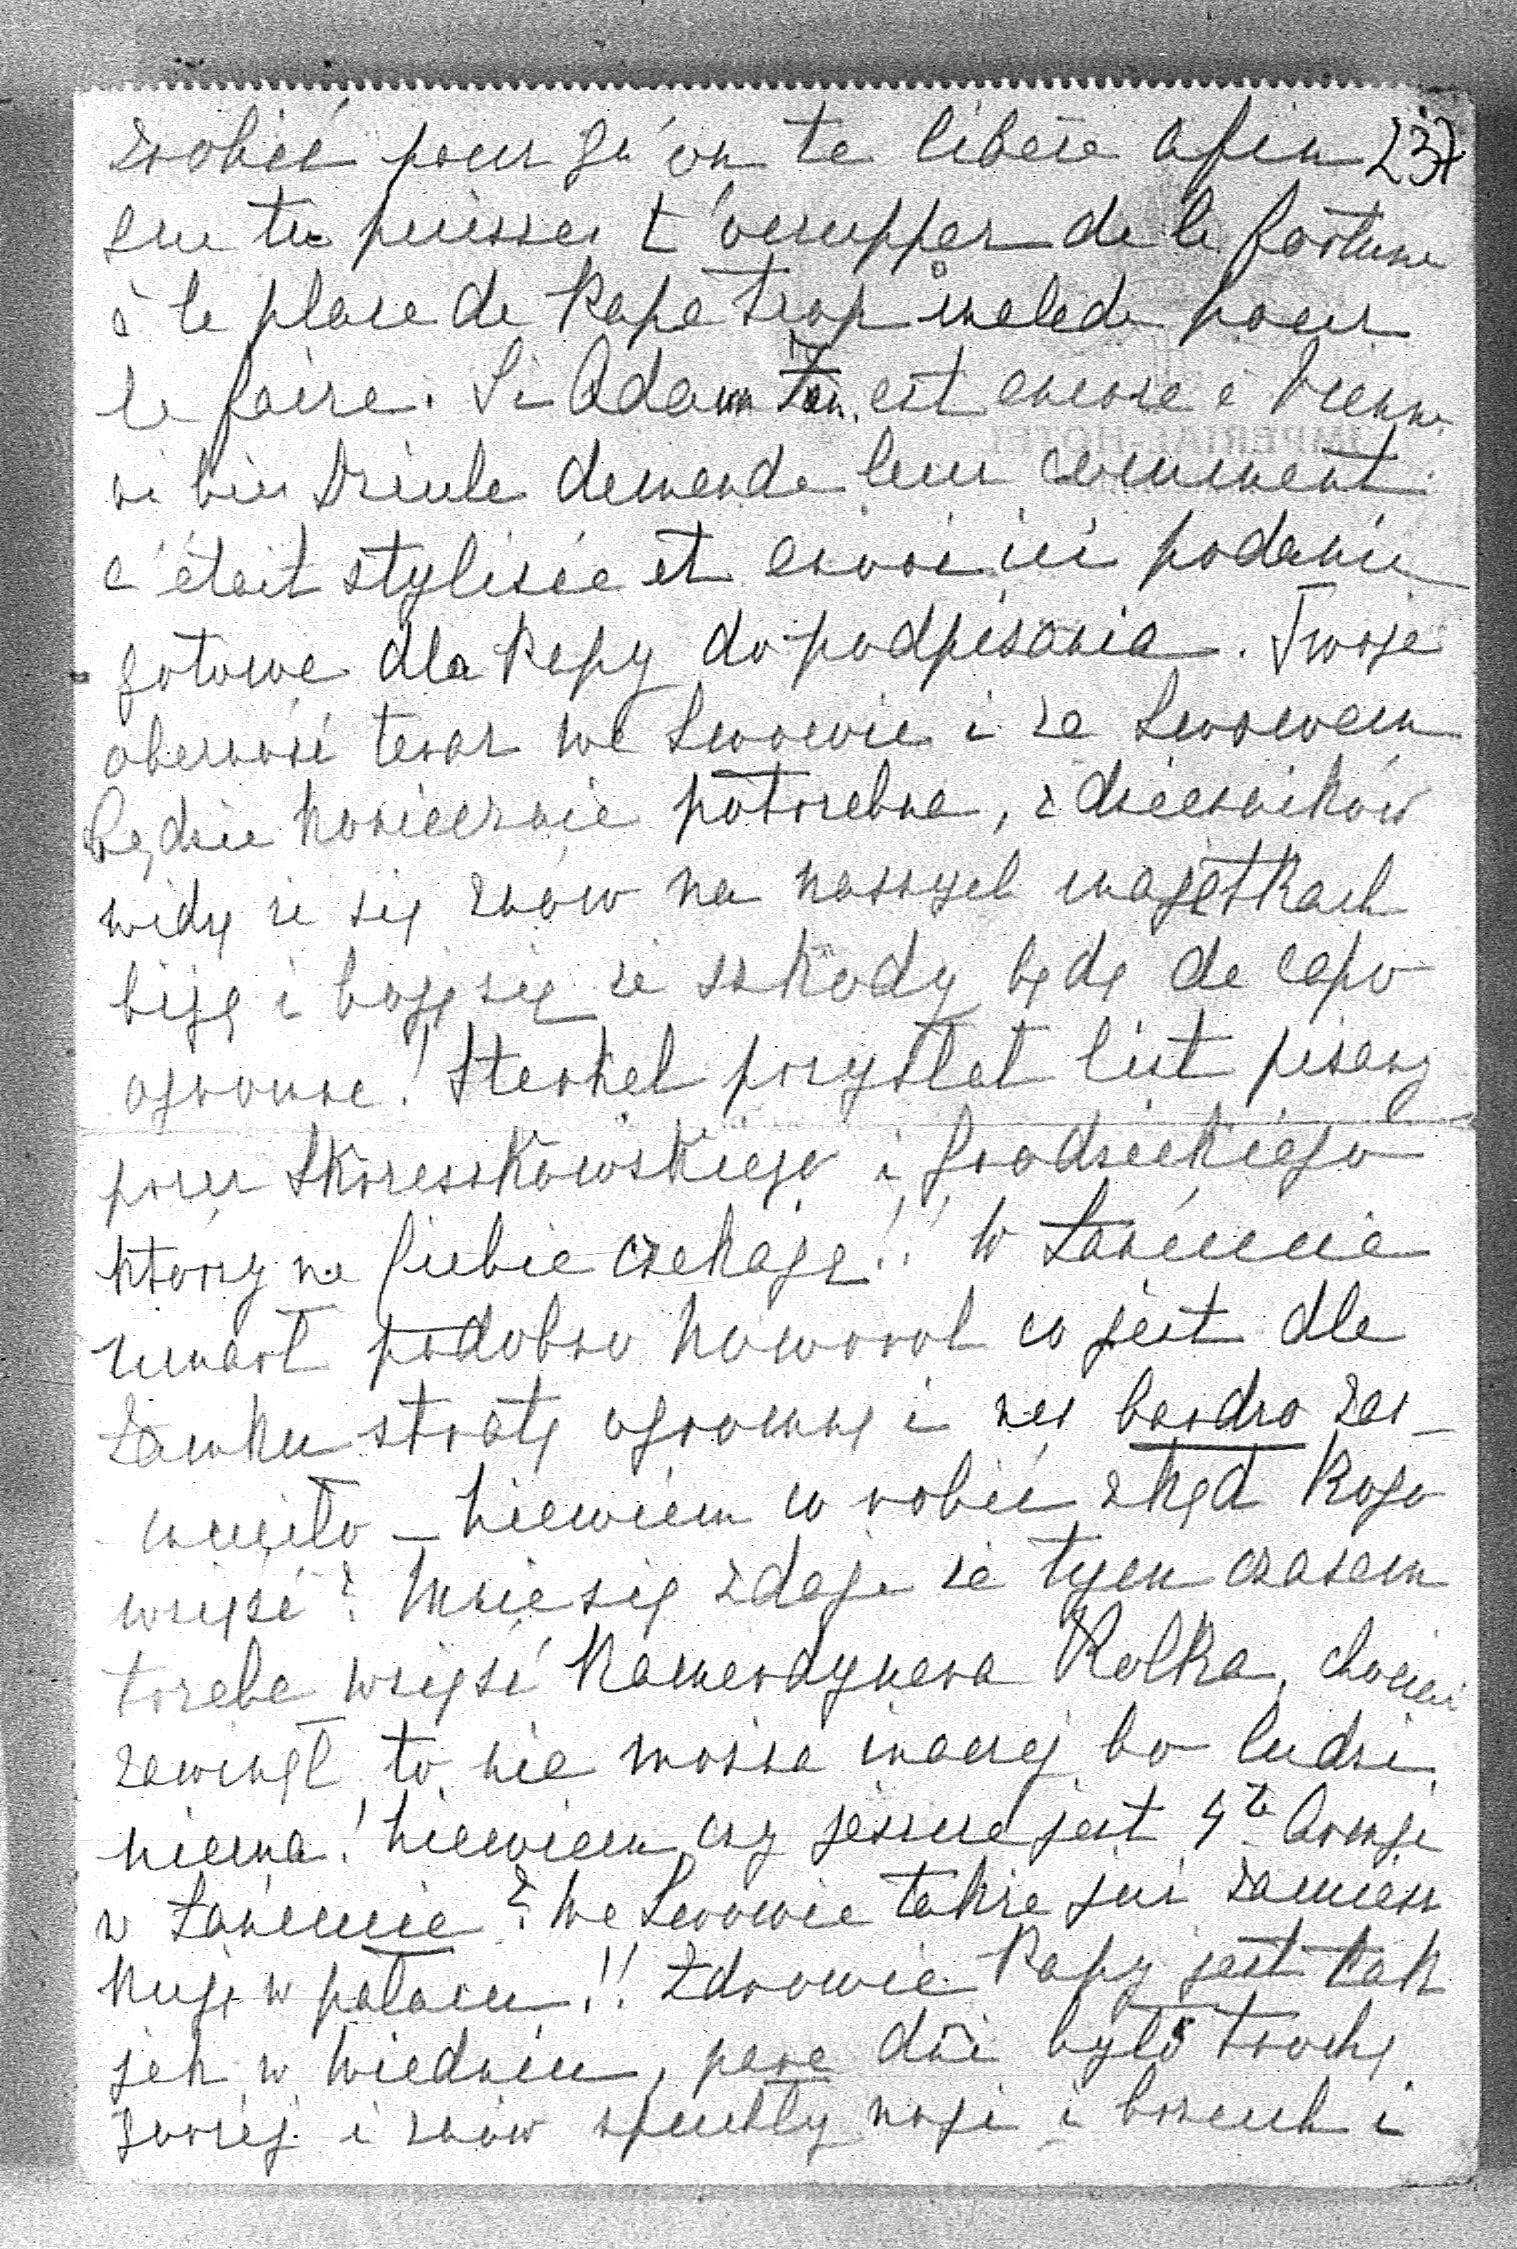 zrobić pour qu'on te libère afin 237
que tu puisses t'occupper de la fortune
à la place de Papa trop malade pour
le faire. Si Adam est encore à Vienne
ou bien Dziule demande leur comment
c'était stylisée et envoi ici podanie
gotowe dla Papy do podpisania. Twoja
obecność teraz we Lwowie i ze Lwowem
będzie koniecznie potrzebna, z dzienników
widzę że się znów na naszych majątkach
biją i boję się że szkody będą da capo
ogromne! Sterkel przysłał list pisany
przez Skrzeszkowskiego i Grodzickiego
którzy na Ciebie czekają!! W Łańcucie
umarł podobno Naworol co jest dla
Zamku stratą ogromną i nas bardzo zas-
muciło – Niewiem co robić zkąd kogo
wziąść? Mnie się zdaje że tym czasem
trzeba wziąść Kamerdynera Rolka, chociaż
zawinął to nie można inaczej bo ludzi
niema! Niewiem czy jeszcze jest 4ta Armja
w Łańcucie? We Lwowie także już zamiesz
kują w pałacu!! Zdrowie Papy jest tak
jak w Wiedniu, parę dni było trochę
gorzej i znów spuchły nogi i brzuch i